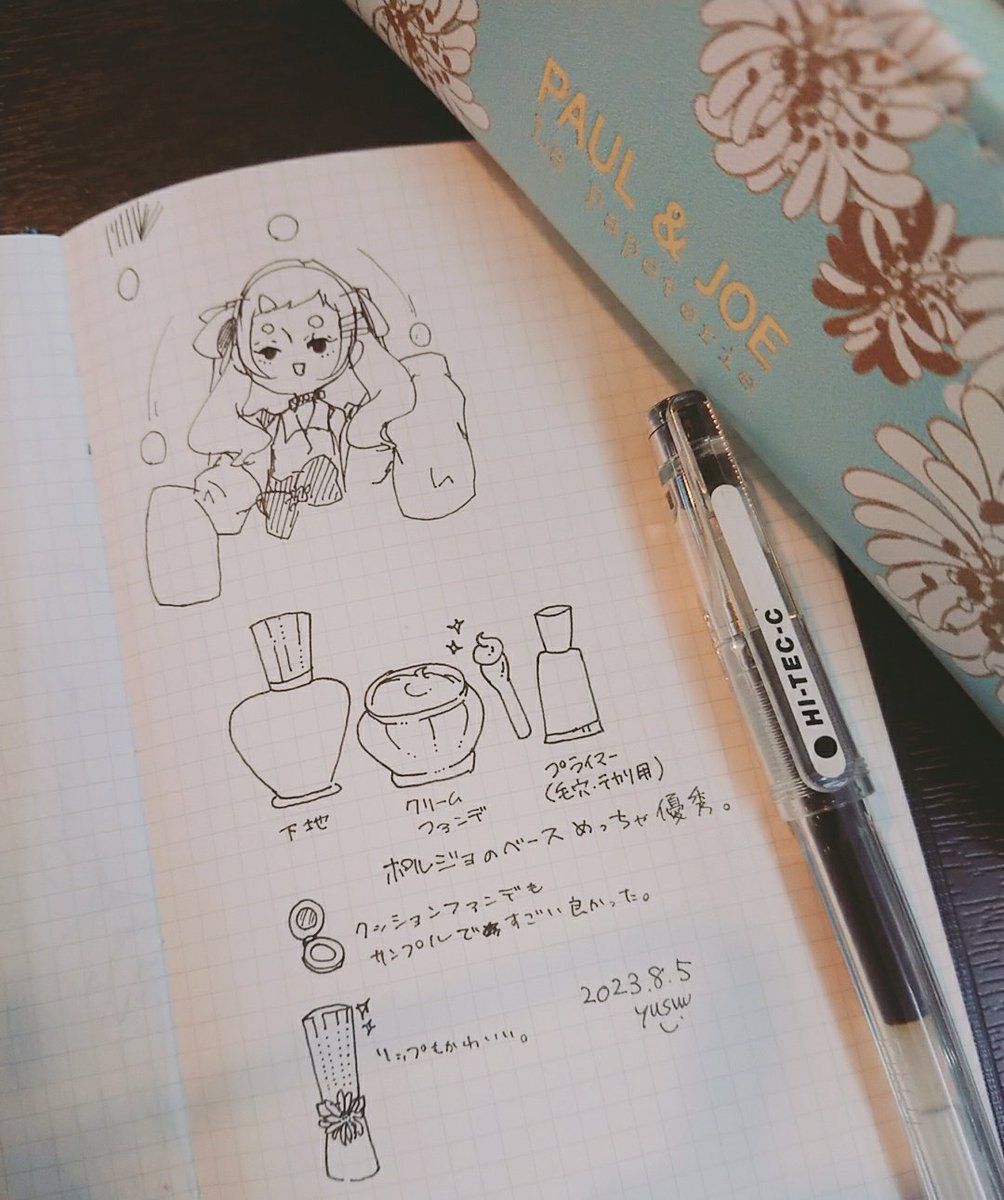 PAUL & JOE
La papeterie
HI-TEC-C
下地
クリーム
ファンデ
プライマー
(毛穴・テカリ用)
ポルジョのベースめっちゃ優秀。
クッションファンデも
サンプルですごい良かった。
リップもかわいい。
2023.8.5
yusuu